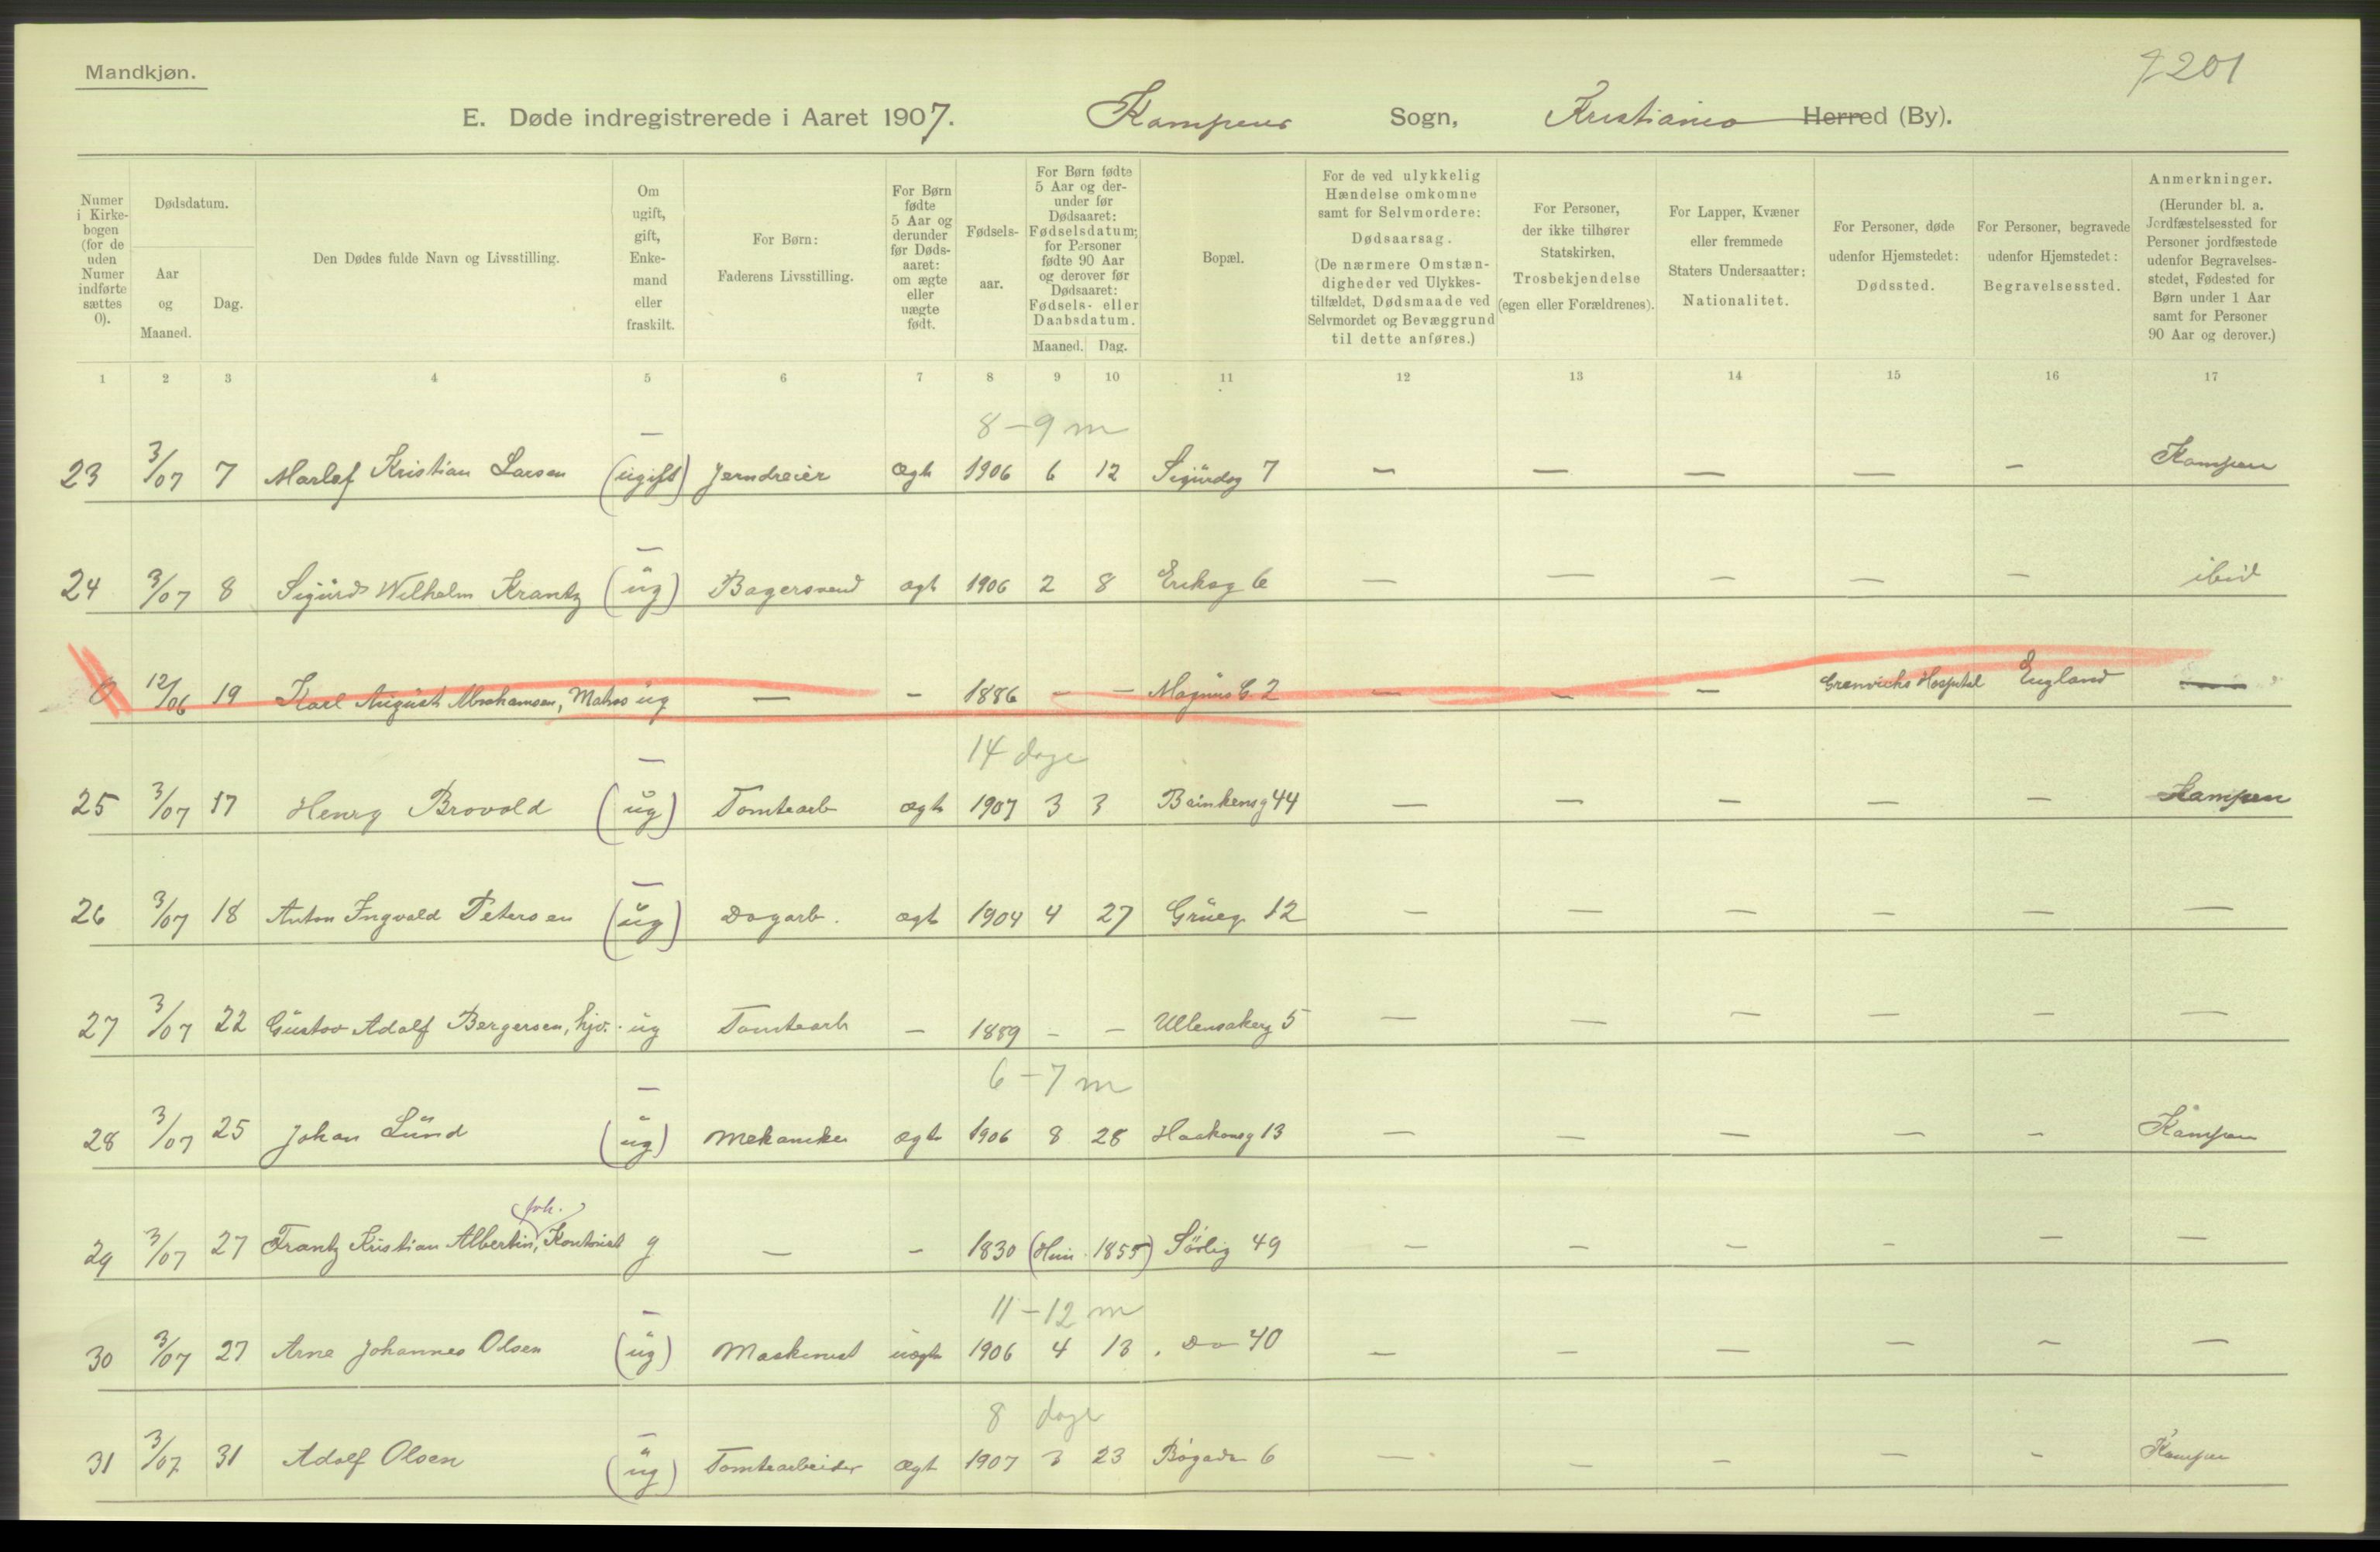 Mandkjøn.
7201
E. Døde indregistrerede i Aaret 1907. Kampens Sogn, Kristiania Herred (By).
Numer i Kirkebogen (for de uden Numer indførte sættes 0).
Dødsdatum.
Aar og Maaned.
Dag.
Den Dødes fulde Navn og Livsstilling.
Om ugift, gift, Enkemand eller fraskilt.
For Børn: Faderens Livsstilling.
For Børn fødte 5 Aar og derunder før Dødsaaret: om ægte eller uægte født.
Fødselsaar.
For Børn fødte 5 Aar og derunder før Dødsaaret: Fødselsdatum; for Personer fødte 90 Aar og derover før Dødsaaret: Fødsels- eller Daabsdatum.
Maaned. Dag.
Bopæl.
For de ved ulykkelig Hændelse omkomne samt for Selvmordere: Dødsaarsag. (De nærmere Omstændigheder ved Ulykkestilfældet, Dødsmaade ved Selvmordet og Bevæggrund til dette anføres.)
For Personer, der ikke tilhører Statskirken, Trosbekjendelse (egen eller Forældrenes).
For Lapper, Kvæner eller fremmede Staters Undersaatter: Nationalitet.
For Personer, døde udenfor Hjemstedet: Dødssted.
For Personer, begravede udenfor Hjemstedet: Begravelsessted.
Anmerkninger. (Herunder bl. a. Jordfæstelsessted for Personer jordfæstede udenfor Begravelsesstedet, Fødested for Børn under 1 Aar samt for Personer 90 Aar og derover.)
1 2 3 4 5 6 7 8 9 10 11 12 13 14 15 16 17
8-9 m
23 3/07 7 Marlef Kristian Larsen (ugift) Jerndreier ægt 1906 6 12 Sigurdsg 7 — — — — — Kampen
24 3/07 8 Sigurd Wilhelm Krantz (ug) Bagersvend ægt 1906 2 8 Eriksg 6 — — — — — ibid
0 12/06 19 Karl August Abrahamsen, Matros ug — — 1886 — — Magnus G 2 — — — Grenvichs Hospital England —
14 dage
25 3/07 17 Henry Brovold (ug) Tomtearb ægt 1907 3 3 Brinkensg 44 — — — — — Kampen
26 3/07 18 Anton Ingvald Petersen (ug) Dagarb. ægt 1904 4 27 Grüeg 12 — — — — — —
27 3/07 22 Gustav Adolf Bergersen, hjv. ug Tomtearb — 1889 — — Ullensakerg 5 — — — — — —
6-7 m
28 3/07 25 Johan Lund (ug) Mekaniker ægt 1906 8 28 Haakonsg 13 — — — — — Kampen
29 3/07 27 Frantz Kristian Albertin, Kontorist g — — 1830 (Hun 1855) Sørlig 49 — — — — — —
11-12 m
30 3/07 27 Arne Johannes Olsen (ug) Maskinist uægt 1906 4 13 Do 40 — — — — — —
8 dage
31 3/07 31 Adolf Olsen (ug) Tomtearbeider ægt 1907 3 23 Bøgade 6 — — — — — Kampen